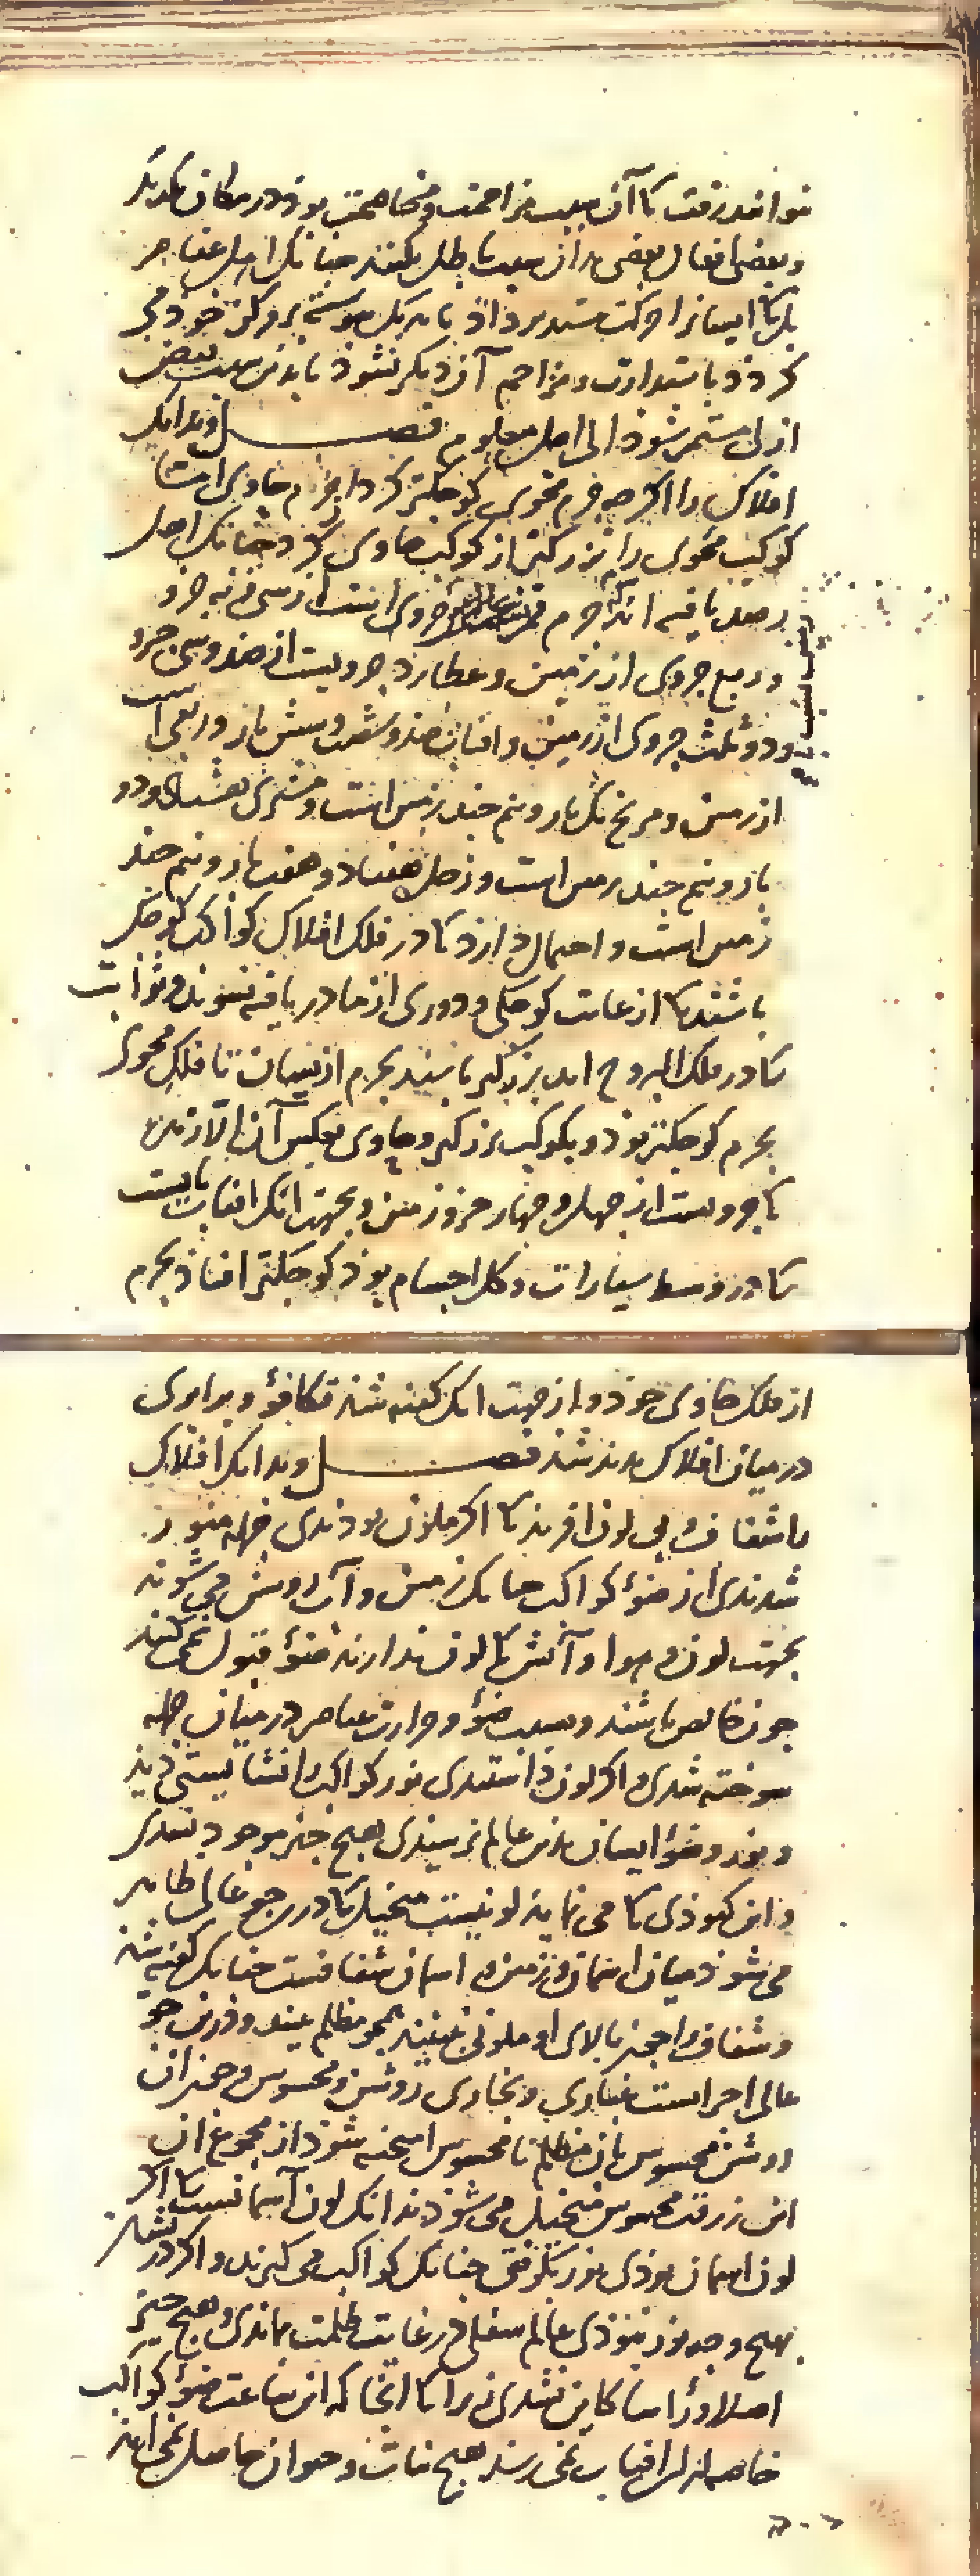 نتوانند رفت کا آن سبب مزاحمت و مخاصمت بود در مکان یکدیگر
و بعضی افعال بعضی بدان سبب باطل کنند چنانک اهل عناصر
بل کا ایشانرا حرکت مستدیر داد تا هر یک پیوسته بر مرکز خود می
گردد باستدارت و مزاحم آن دیگر نشود تا بدین سبب
ازلی مستمر شود الی اجل معلوم فصل و بدانک
افلاک را اگر چه جرم محوی کوچکتر کرد از جرم حاوی اما
کوکب محوی را بزرگتر از کوکب حاوی کرد چنانک اهل
رصد یافته‌اند کا جرم قمر جزوی است از سی و نه جزو
و ربع جزوی از زمین و عطارد جزویست از صد و سی جزو
و دو ثلث جزوی از زمین و آفتاب صد و شصت و شش بار و ربعی است
از زمین و مریخ یک بار و نیم چند زمین است و مشتری هشتاد و دو
بار و نیم چند زمین است و زحل هفتاد و هفت بار و نیم چند
زمین است و احتمال دارد کا در فلک افلاک کواکب کوچک
باشند کا از غایت کوچکی و دوری از ما دریافته نشوند و ثوابت
کا در فلک البروج اند بزرگتر باشند بجرم از ایشان تا فلک محوی
بجرم کوچکتر بود و بکوکب بزرگتر و حاوی بعکس آن الا زهره
کا جزویست از چهل و چهار جزو زمین و بجهت آنک آفتاب بایست
کا در وسط سیارات و کل اجسام بود کوچکتر افتاد بجرم
از فلک حاوی خود و از جهت آنک گفته شد تکافؤ و برابری
در میان افلاک پدید شد فصل و بدانک افلاک
را شفاف و بی لون آفرید کا اگر ملون بودندی جمله منور
شدندی از ضوء کواکب چنانک زمین و آب روشن می شوند
بجهت لون و هوا و آتش کا لون ندارند ضوء قبول نمی کنند
چون خالص باشند و بسبب ضوء و حرارت عناصر در میان جمله
سوخته شدی و اگر لون داشتندی نور کواکب را نشایستی دید
و نور و ضوء ایشان بدین عالم نرسیدی هیچ چیز موجود نشدی
و این کبودی کا می نماید لونیست متخیل کا در جو عالی ظاهر
می شود میان آسمان و زمین و آسمان شفافست چنانک گفته شد
و شفاف را چون بالای او ملونی نبینند همچو مظلم بینند و درین جو
عالی اجزاست غباری و بخاری روشن و محسوس و چون آن
روشن محسوس بآن مظلم نامحسوس آمیخته شود از مجموع آن
این زرقت محسوس متخیل می شود نه آنک لون آسمانست کا اگر
لون آسمان بودی نور بگرفتی چنانک کواکب می گیرند و اگر در
بهیچ وجه نور نبودی عالم سفلی در غایت ظلمت بماندی و هیچ چیز
اصلا و رأسا کاین نشدی زیرا کا آنجا که این ساعت ضوء کواکب
خاصه از آن آفتاب نمی رسد هیچ نبات و حیوان حاصل نمی آید